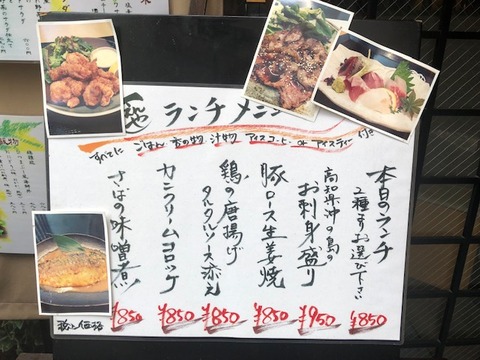 ランチメニュー
すべてに ごはん 香の物 汁物 アイスコーヒー or アイスティー 付き
本日のランチ
2種よりお選び下さい
¥850
高知県沖の島の
お刺身盛り
¥950
豚ロース生姜焼
¥850
鶏の唐揚げ
タルタルソース添え
¥850
カニクリームコロッケ
¥850
さばの味噌煮
¥850